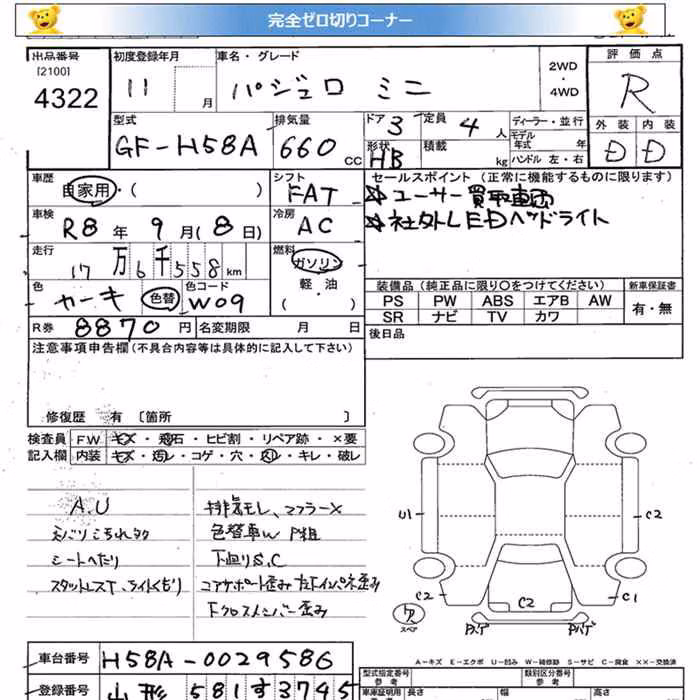 完全ゼロ切りコーナー
出品番号
[2100]
4322
初度登録年月
11 月
車名・グレード
パジェロ ミニ
2WD
・
4WD
評価点
R
外装 内装
D D
型式
GF-H58A
排気量
660 cc
ドア 3
形状
HB
定員 4 人
積載 kg
ディーラー・並行
モデル
年式 年
ハンドル 左・右
車歴
自家用・( )
シフト
FAT
セールスポイント (正常に機能するものに限ります)
☆ユーザー買取車両
☆社外LEDヘッドライト
車検
R8 年 9 月(8 日)
冷房
AC
走行
17万6千558 km
燃料
ガソリン
軽・油
( )
色
カーキ
色替
色コード
W09
装備品(純正品に限り○をつけてください)
新車保証書
PS PW ABS エアB AW
SR ナビ TV カワ
有・無
R券 8870 円
名変期限 月 日
後日品
注意事項申告欄(不具合内容等は具体的に記入して下さい)
修復歴 有 〔箇所 〕
検査員
記入欄
F.W キズ・飛石・ヒビ割・リペア跡・×要
内装 キズ・汚レ・コゲ・穴・スレ・キレ・破レ
A.U
シートへたり
スタットレスT、ライトくもり
排気モレ、マフラー×
色替車W P粗
下廻りS.C
コアサポート歪み
Fクロスメンバー歪み
U1
C2
C2
C2
C1
スペア
Pハゲ
Pハゲ
A－キズ E－エクボ U－凹み W－補修跡 S－サビ C－腐食 ××－交換済
車台番号 H58A-0029586
登録番号 山形 581 す 3745
型式指定番号
類別区分番号
参考
参考
車庫証明用
長さ
幅
高さ